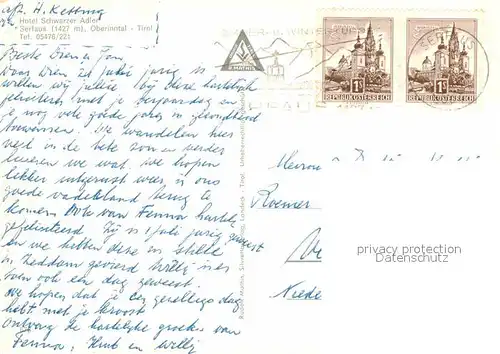 afz. H. Ketting
Hotel Schwarzer Adler
Serfaus (1427 m), Oberinntal - Tirol
Tel. 05476/221
Beste Dien en Fam,
Daar Dien 20 juli jarig is
willen wij jullie bij deze hartelijk
feliciteren met je verjaardag en
je nog vele goede jaren in gezondheid
toewensen. We wandelen hier
veel in de bete zon en verder
luieren we wat. we hopen
lekker uitgerust weer in ons
goede vaderland terug te
komen Ook van Fenna hartelijk
gefeliciteerd. Zij is 1 juli jarig geweest
en we hebben deze in stilte
in Zeddam gevierd Willij is er
toen ook een dag geweest.
We hopen dat je een gezellige dag
hebt met je kroost
Ontvang de hartelijke groeten van
Fenna, Huub en Willy
SOMMER- U. WINTERKURORT
SERFAUS
1S
REPUBLIK ÖSTERREICH
1S
REPUBLIK ÖSTERREICH
Rudolf Mathis, Silvretta-Verlag, Landeck - Tirol. Urheberrechtlich
Mevrouw
Roemer
Ve
Niede
privacy protection
Datenschutz